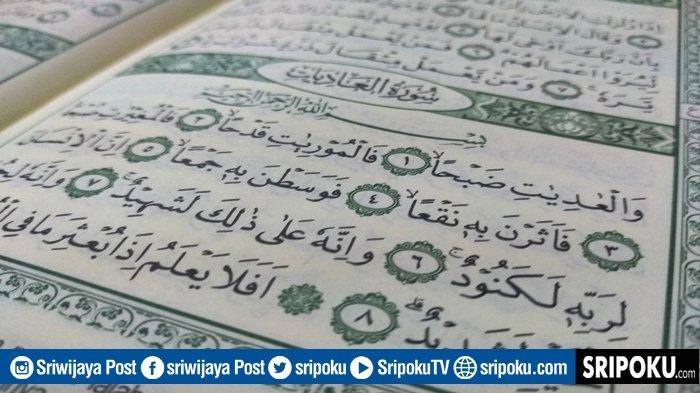 وَقَالَ الْاِنْسَانُ
بِاَنَّ رَبَّكَ اَوْحٰى لَهَا
لِّيُرَوْا اَعْمَالَهُمْ ۝٦ فَمَنْ يَّعْمَلْ
يَّرَهٗ ۝٧ وَمَنْ يَّعْمَلْ مِثْقَالَ ذَرَّةٍ
سُوْرَةُ الْعَادِيَاتِ
بِسْمِ اللّٰهِ الرَّحْمٰنِ الرَّحِيْمِ
وَالْعٰدِيٰتِ ضَبْحًا ۝١ فَالْمُوْرِيٰتِ قَدْحًا ۝٢ فَالْمُغِيْرٰتِ صُبْحًا
۝٣ فَاَثَرْنَ بِهٖ نَقْعًا ۝٤ فَوَسَطْنَ بِهٖ جَمْعًا ۝٥ اِنَّ الْاِنْسَانَ
لِرَبِّهٖ لَكَنُوْدٌ ۝٦ وَاِنَّهٗ عَلٰى ذٰلِكَ لَشَهِيْدٌ ۝٧ وَاِنَّهٗ لِحُبِّ
لَشَدِيْدٌ ۝٨ اَفَلَا يَعْلَمُ اِذَا بُعْثِرَ مَا فِى
Sriwijaya Post sriwijaya Post sripoku SripokuTV sripoku.com SRIPOKU.com